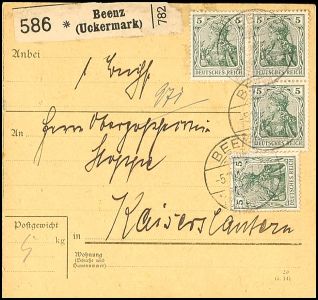 586 * Beenz
(Uckermark)
782
5 5 5 5
DEUTSCHES REICH DEUTSCHES REICH
Anbei
5 5
DEUTSCHES REICH
971
An
Herrn
Hoppe
BEENZ
5 5
DEUTSCHES REICH
Postgewicht
5 kg
in Kaiserslautern
Wohnung
(Straße und
Hausnummer)